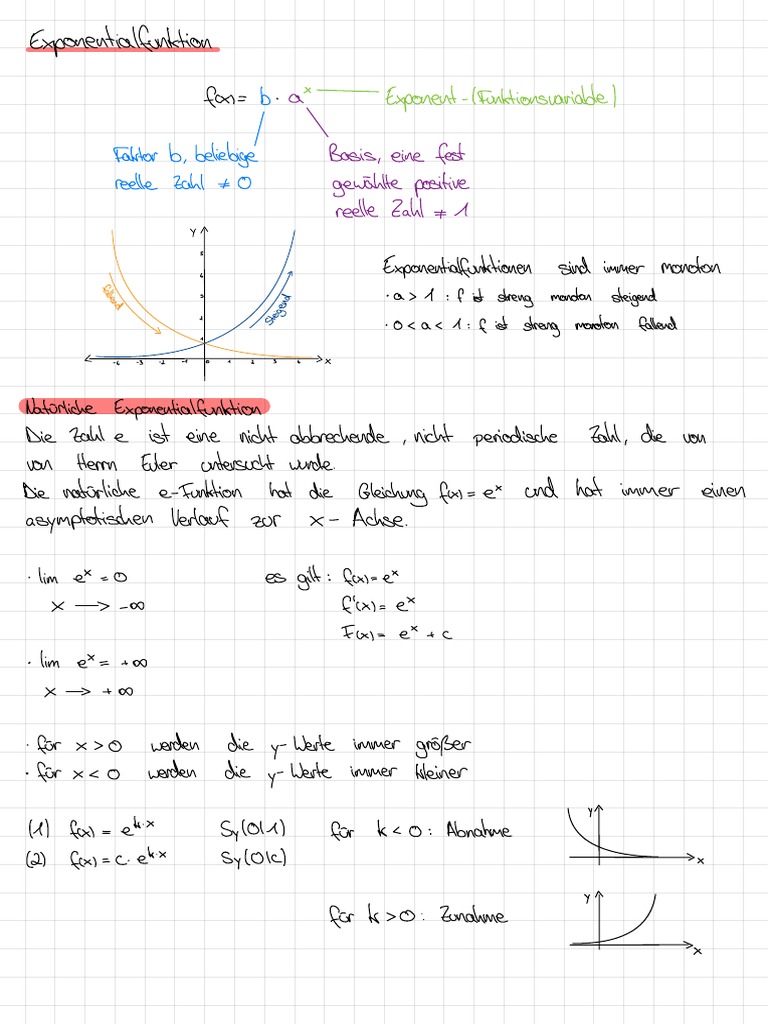 Exponentialfunktion
f(x) = b · aˣ Exponent - (Funktionsvariable)
Faktor b, beliebige
reelle Zahl ≠ 0
Basis, eine fest
gewählte positive
reelle Zahl ≠ 1
y
fallend
steigend
x
Exponentialfunktionen sind immer monoton
· a > 1 : f ist streng monoton steigend
· 0 < a < 1 : f ist streng monoton fallend
Natürliche Exponentialfunktion
Die Zahl e ist eine nicht abbrechende, nicht periodische Zahl, die von
von Herrn Euler untersucht wurde.
Die natürliche e-Funktion hat die Gleichung f(x) = eˣ und hat immer einen
asymptotischen Verlauf zur x-Achse.
· lim eˣ = 0
x → -∞
es gilt: f(x) = eˣ
f'(x) = eˣ
F(x) = eˣ + c
· lim eˣ = +∞
x → +∞
· für x > 0 werden die y-Werte immer größer
· für x < 0 werden die y-Werte immer kleiner
(1) f(x) = e^k·x Sy(0|1) für k < 0 : Abnahme
(2) f(x) = c · e^k·x Sy(0|c)
y
x
für k > 0 : Zunahme
y
x